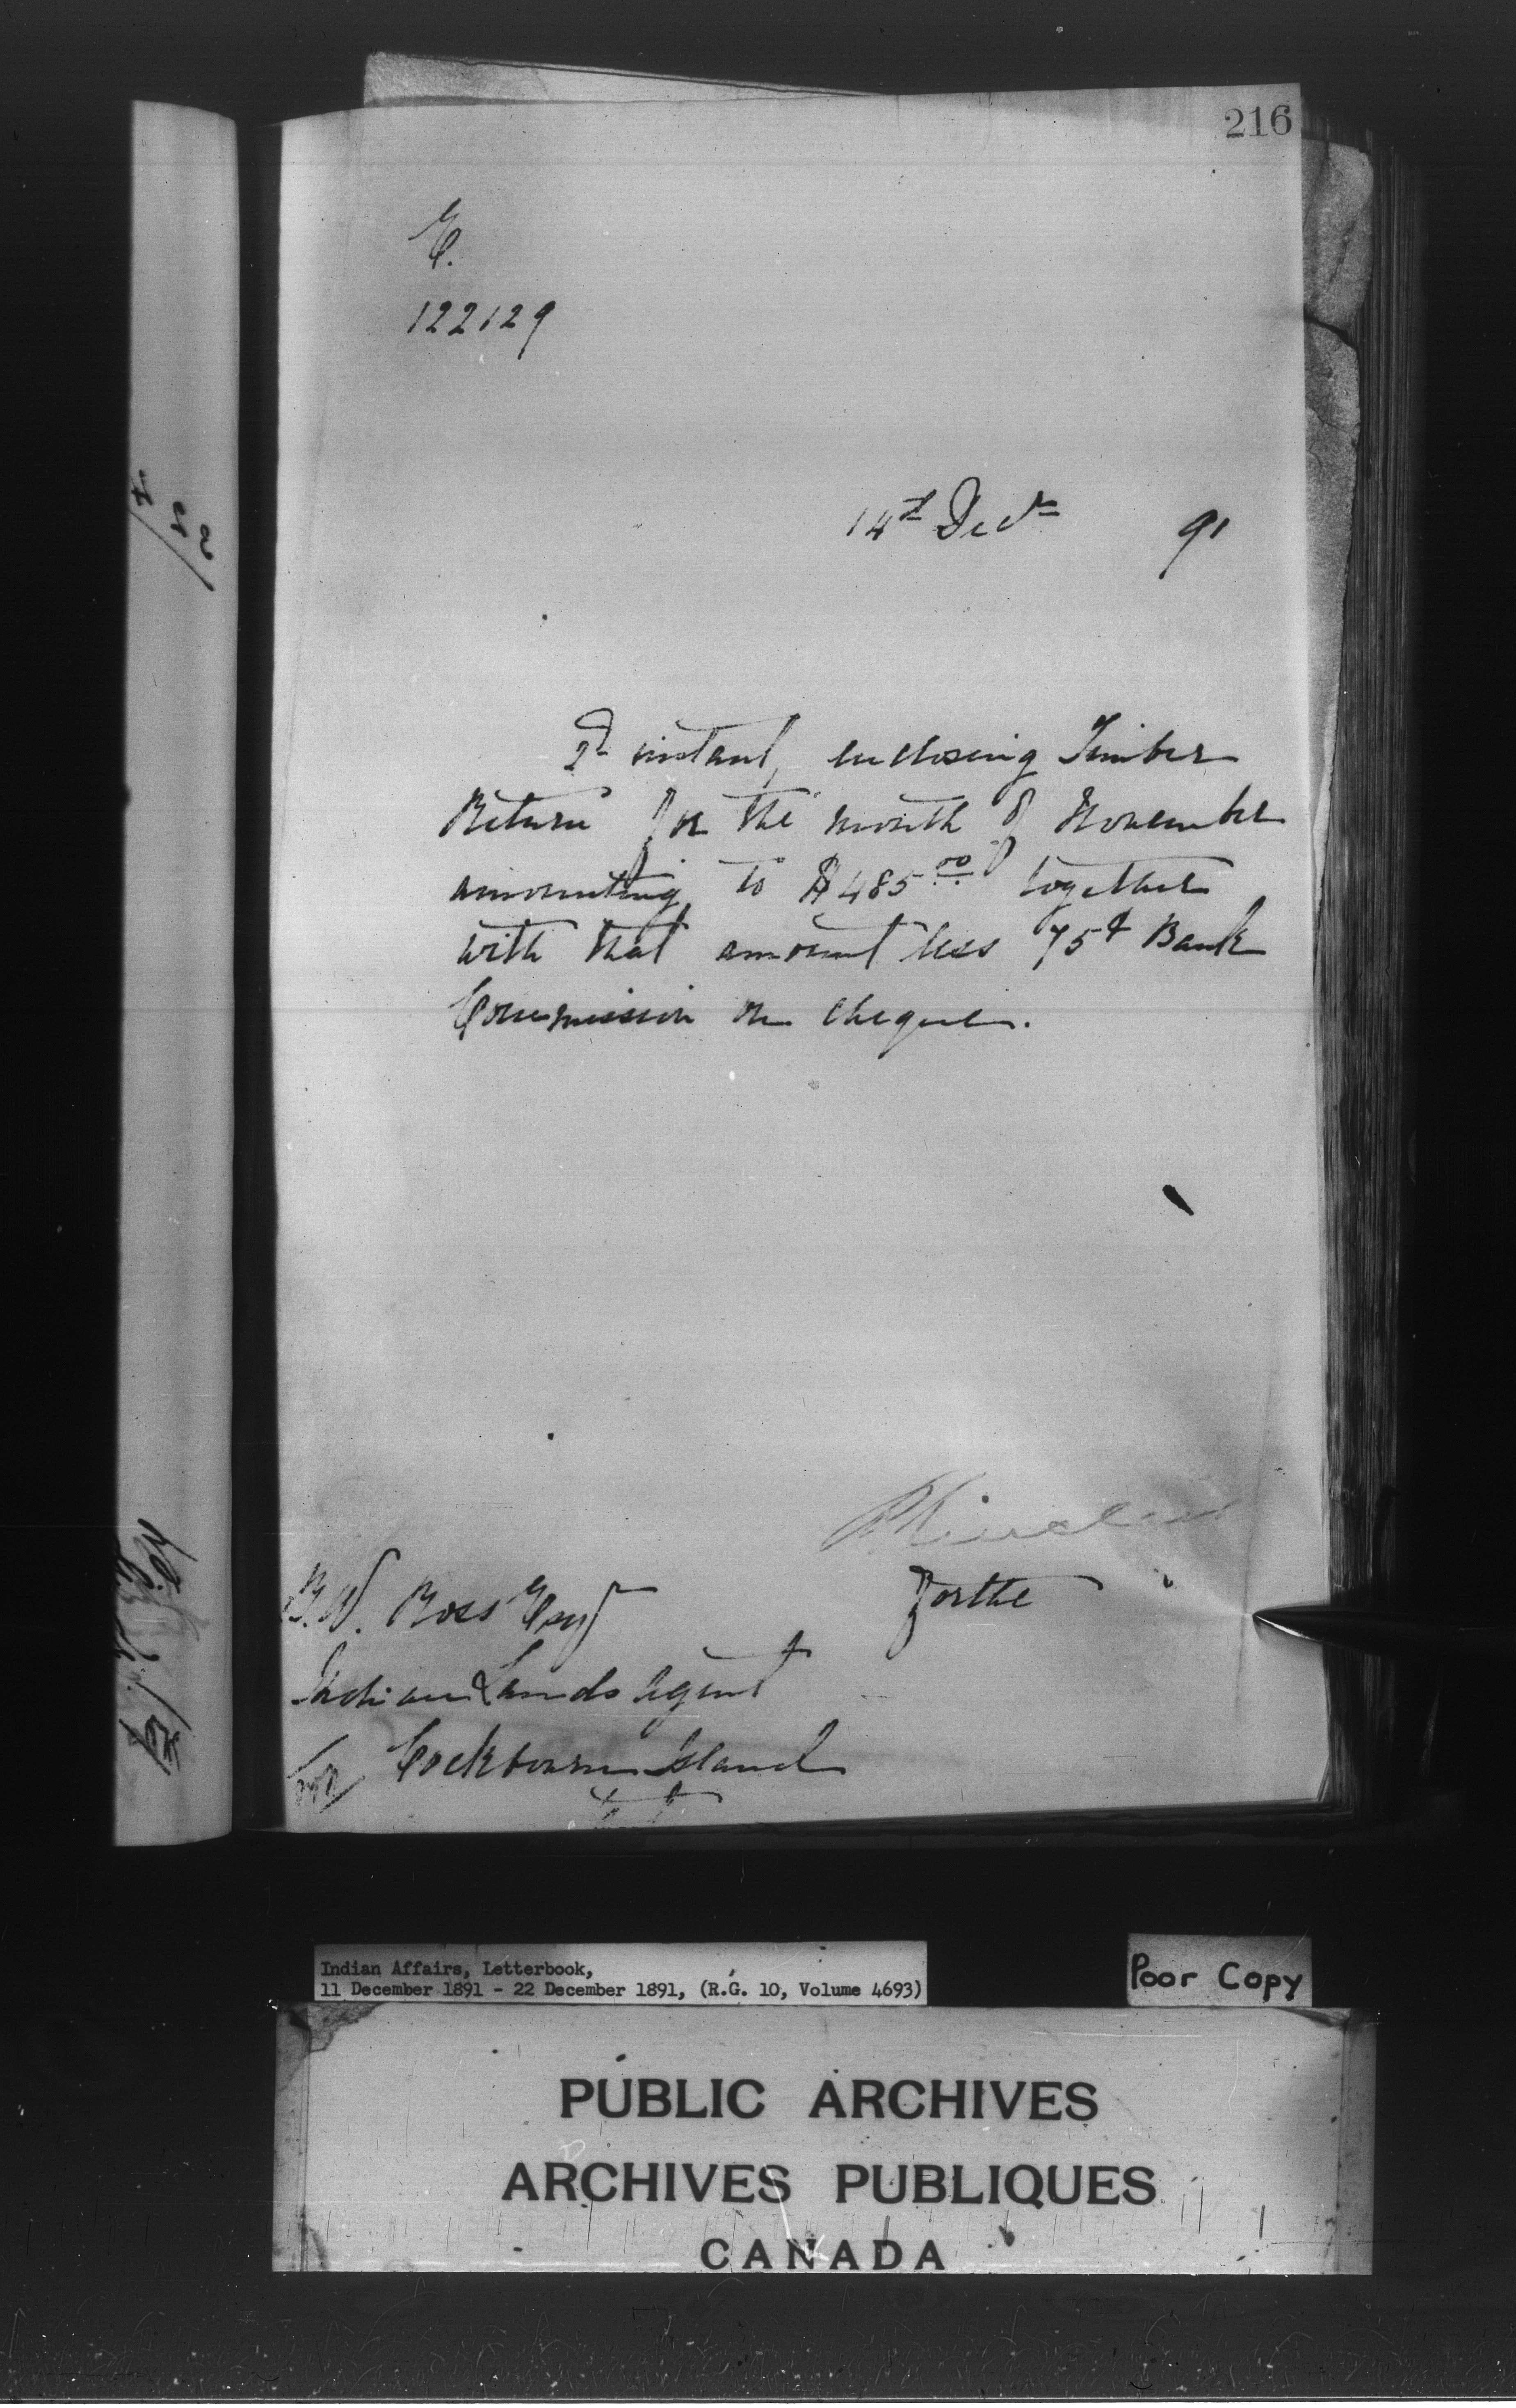 216
E.
122129
14th Decr 91
2d instant, enclosing Timber
Return for the month of November
amounting to $485.00 together
with that amount less 75¢ Bank
Commission on cheque.
B.W. Ross Esqr
for the
Indian Lands Agent
Cockburn Island
Ont
Indian Affairs, Letterbook,
11 December 1891 - 22 December 1891, (R.G. 10, Volume 4693)
Poor Copy
PUBLIC ARCHIVES
ARCHIVES PUBLIQUES
CANADA